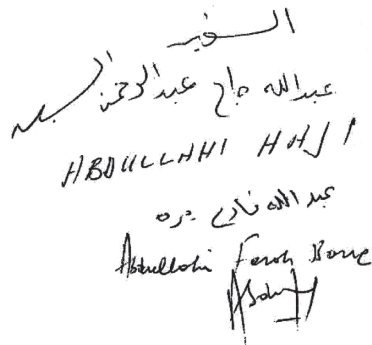 السفير
عبدالله حاج عبدالرحمن
ABDULLAHI HAJI
عبد الله فارح بره
Abdullahi Farah Barre